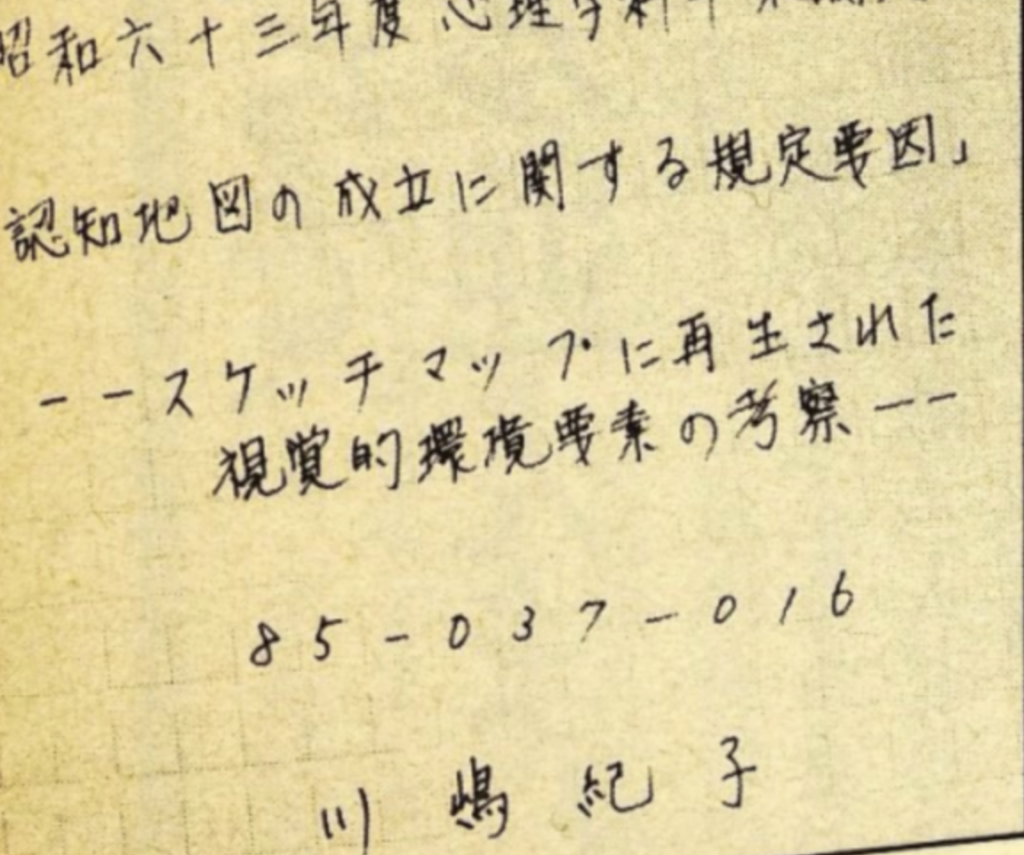 昭和六十三年度心理学科卒業論文
認知地図の成立に関する規定要因」
--スケッチマップに再生された
視覚的環境要素の考察--
85-037-016
川嶋紀子